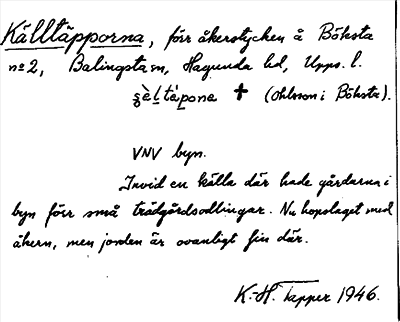 Källtäpporna, förr åkerstycken å Böksta
nº 2, Balingsta sn, Hagunda hd, Upps. l.
ʂèl̥tápona ✝ (Ohlsson i Böksta).
VNV byn.
Invid en källa där hade gårdarna i
byn förr små trädgårdsodlingar. Nu hopslaget med
åkern, men jorden är ovanligt fin där.
K.-H. Tapper 1946.